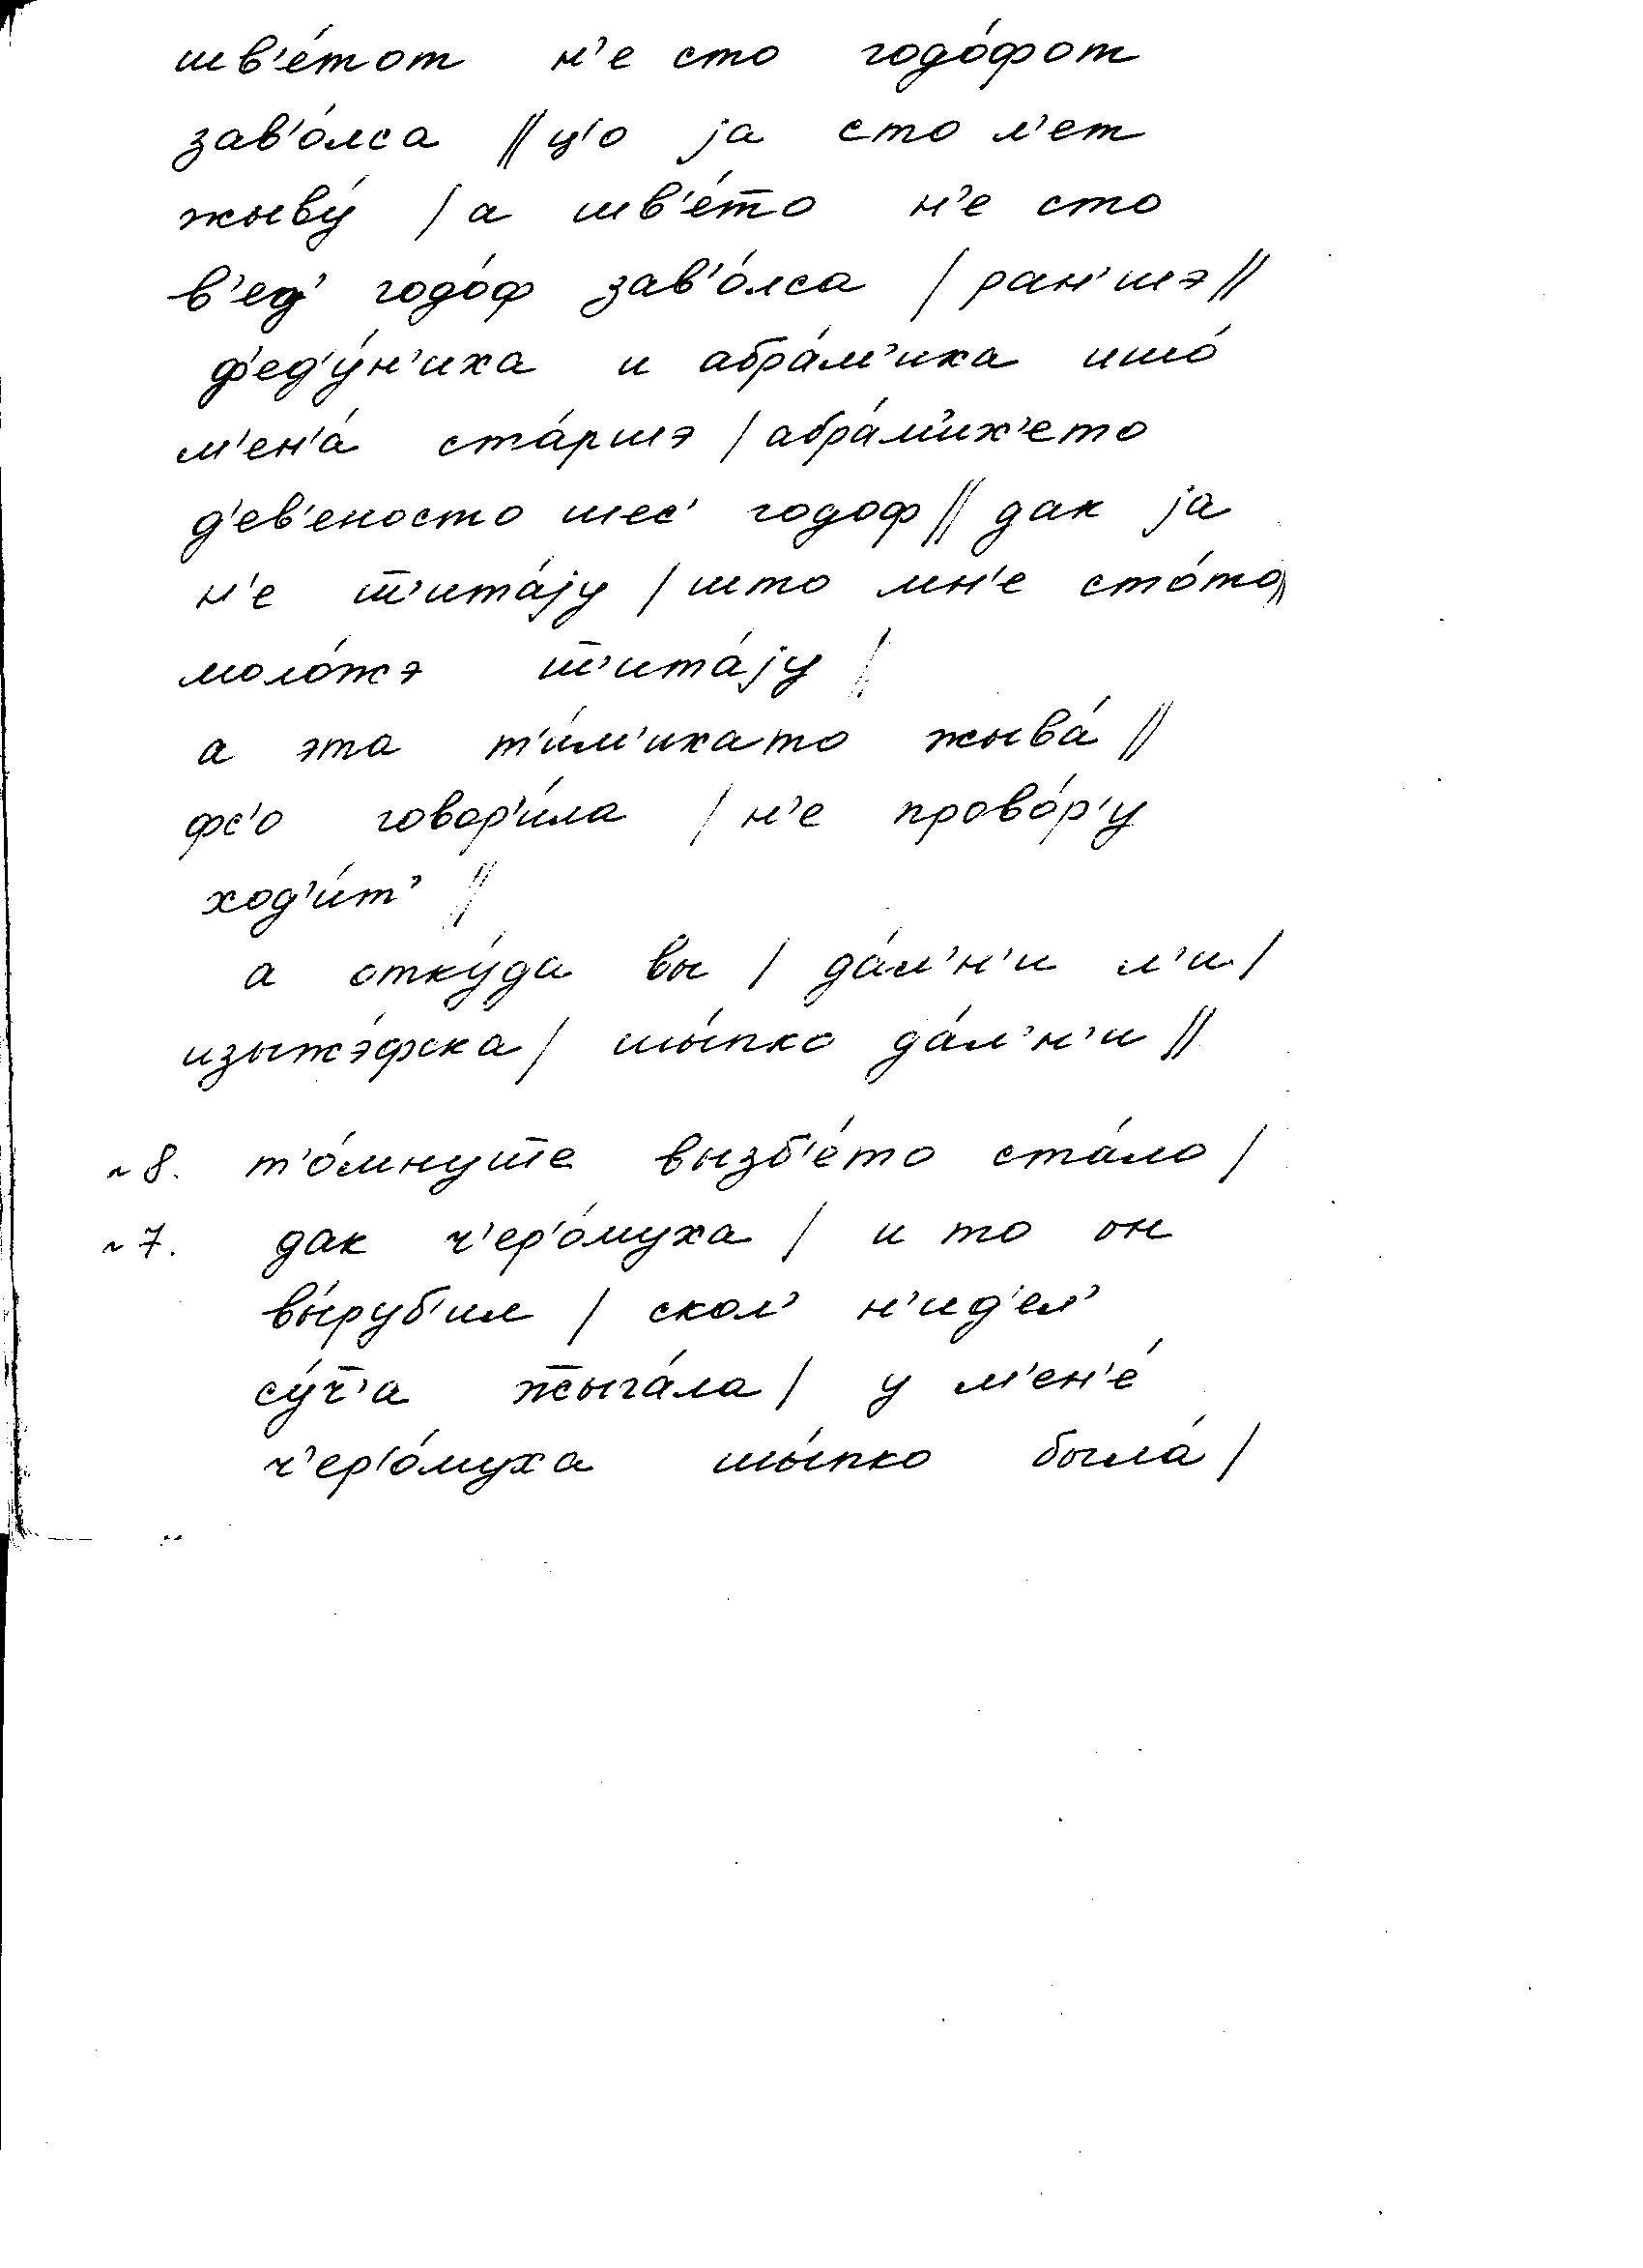 шв'е́тот н'е сто годо́фот
зав'о́лса || ц'о jа сто л'ет
жыву́ | а шв'е́т̅о н'е сто
в'ед' годо́ф зав'о́лса | ран'шэ ||
ф'ед'у́н'иха и абра́м'иха ишо́
м'ен'а́ ста́ршэ | абра́м'их'ето
д'ев'еносто шес' годоф || дак jа
н'е ш̅'ита́jу | што мн'е сто́то ||
моло́жэ ш̅'ита́jу |
а эта т'и́м'ихато жыва́ ||
фс'о говор'и́ла | н'е прово́р'у
ход'и́т' ||
а отку́да вы | да́л'н'и л'и |
изыжэ́фска | шы́пко да́л'н'и ||
~8. т'о́мнут̅е вызб'е́то ста́ло |
~7. дак ч'ер'о́муха | и то он
вы́руб'ил | скол' н'ид'ел'
су́ч̅'а ж̅ыга́ла | у м'ен'е́
ч'ер'о́муха шы́пко была́ |